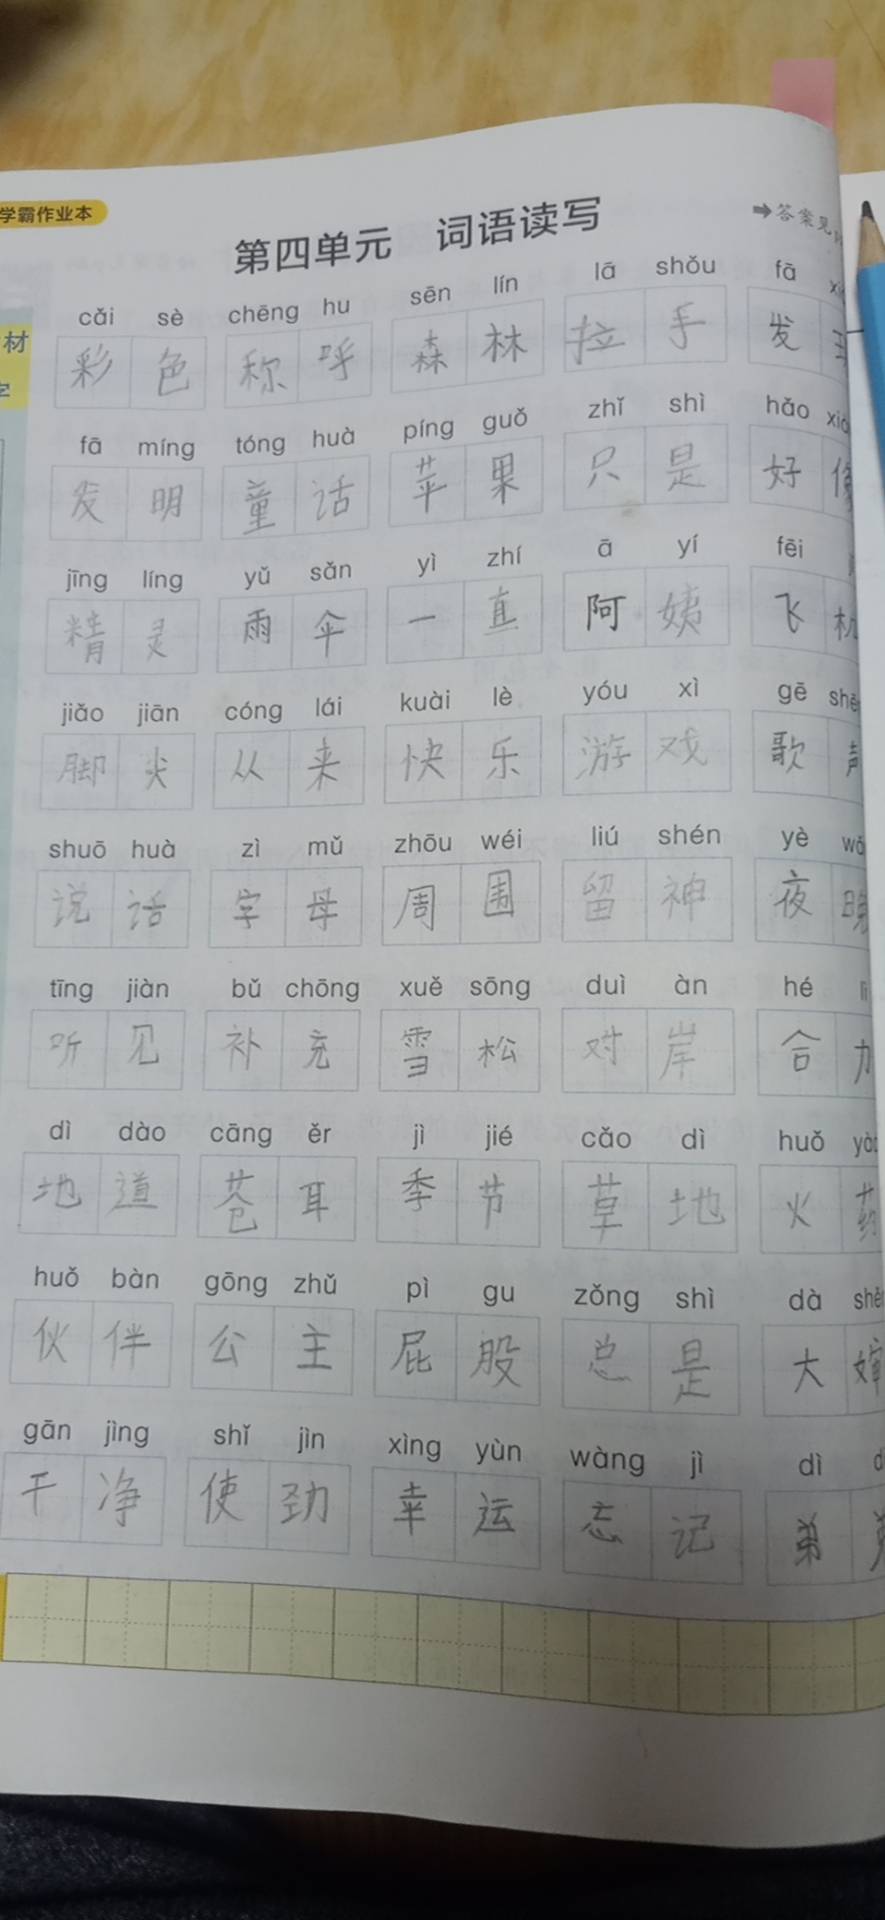 学霸作业本
第四单元 词语读写
➡答案见
材
字
cǎi sè chēng hu sēn lín lā shǒu fā
彩色 称呼 森林 拉手 发
fā míng tóng huà píng guǒ zhǐ shì hǎo
发明 童话 苹果 只是 好
jīng líng yǔ sǎn yì zhí ā yí fēi
精灵 雨伞 一直 阿姨 飞机
jiǎo jiān cóng lái kuài lè yóu xì gē
脚尖 从来 快乐 游戏 歌声
shuō huà zì mǔ zhōu wéi liú shén yè
说话 字母 周围 留神 夜晚
tīng jiàn bǔ chōng xuě sōng duì àn hé
听见 补充 雪松 对岸 合力
dì dào cāng ěr jì jié cǎo dì huǒ
地道 苍耳 季节 草地 火药
huǒ bàn gōng zhǔ pì gu zǒng shì dà
伙伴 公主 屁股 总是 大婶
gān jìng shǐ jìn xìng yùn wàng jì dì
干净 使劲 幸运 忘记 弟